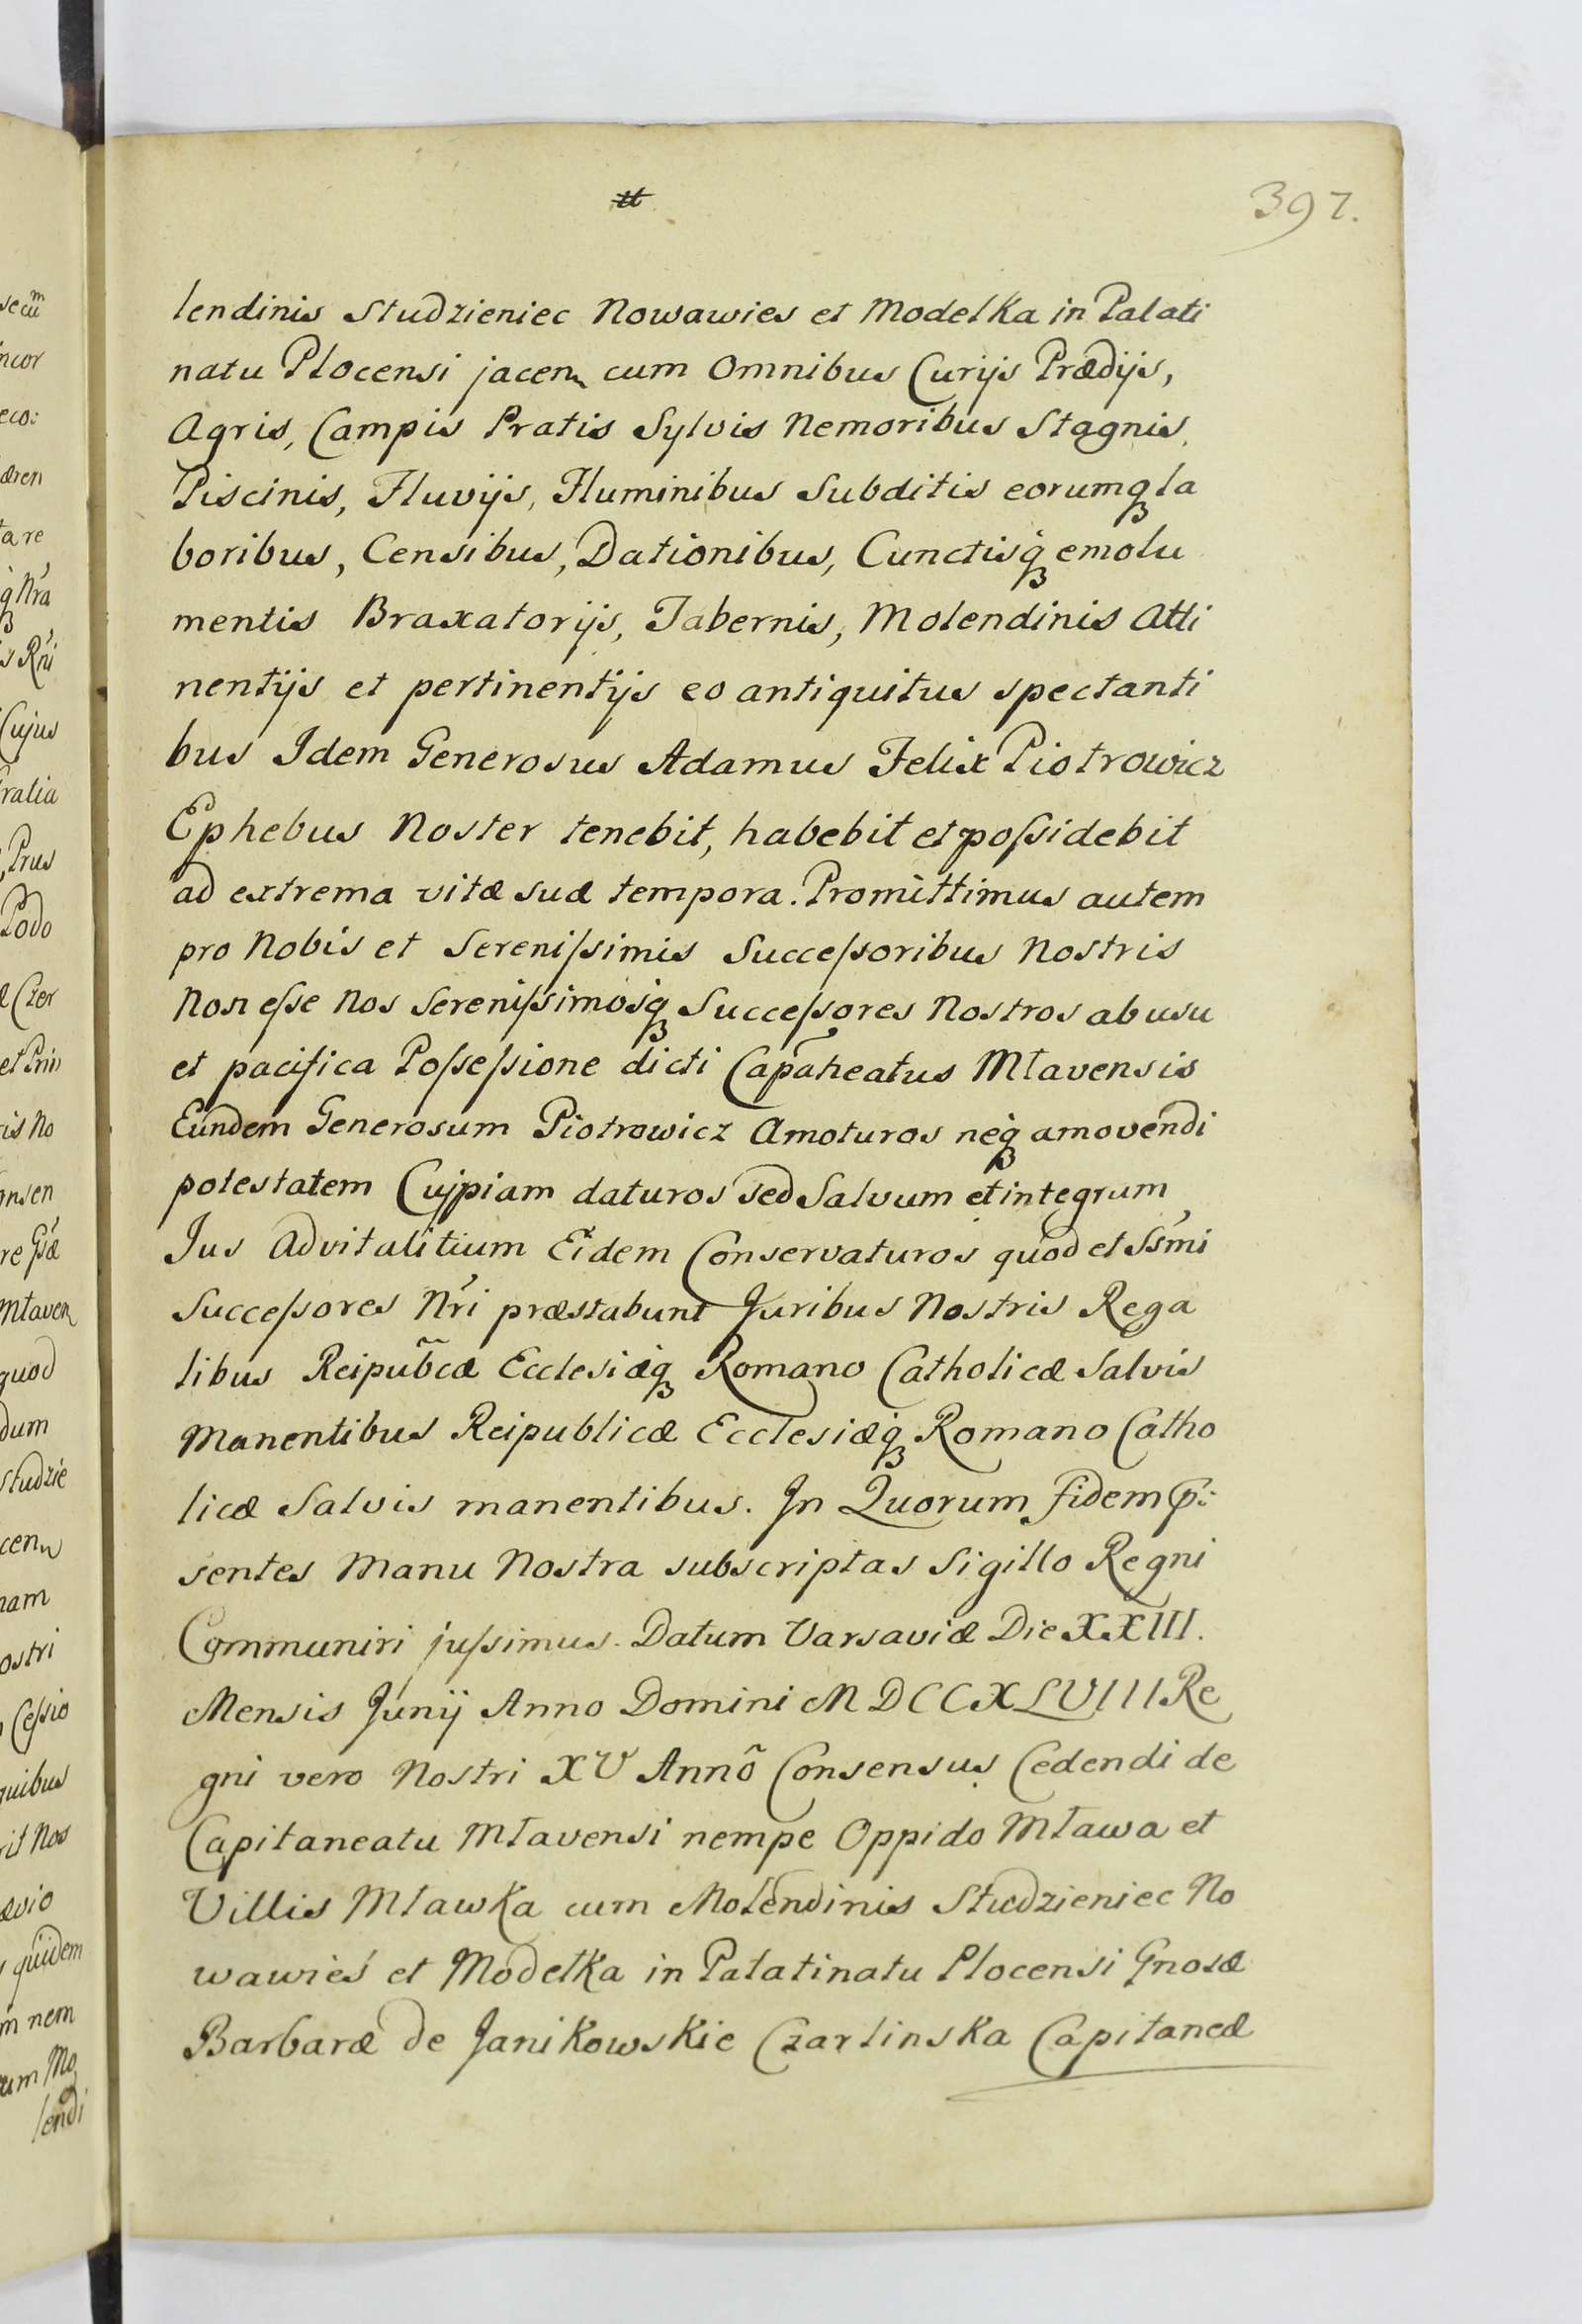 397.
lendinis Studzieniec Nowawies et Modelka in Palati
natu Plocensi jacen cum Omnibus Curijs Prædijs,
Agris, Campis Pratis Sylvis Nemoribus Stagnis,
Piscinis, Fluvijs, Fluminibus Subditis eorumq la
boribus, Censibus, Dationibus, Cunctisq emolu
mentis Braxatorijs, Tabernis, Molendinis Atti
nentijs et pertinentijs eo antiquitus spectanti
bus Idem Generosus Adamus Felix Piotrowicz
Ephebus Noster tenebit, habebit et poſsidebit
ad extrema vitæ suæ tempora. Promittimus autem
pro Nobis et Sereniſsimis Succeſsoribus Nostris
Non eſse Nos Sereniſsimosq Succeſsores Nostros ab usu
et pacifica Poſseſsione dicti Capaneatus Mlavensis
Eundem Generosum Piotrowicz Amoturos neq amovendi
potestatem Cujpiam daturos sed Salvum et integrum
Jus Advitalitium Eidem Conservaturos quod et Ssmi
Succeſsores Nri præstabunt Juribus Nostris Rega
libus Reipubcæ Ecclesiæq Romano Catholicæ Salvis
Manentibus Reipublicæ Ecclesiæq Romano Catho
licæ Salvis manentibus. In Quorum fidem p:
sentes Manu Nostra subscriptas Sigillo Regni
Communiri juſsimus. Datum Varsaviæ Die XXIII.
Mensis Junij Anno Domini MDCCXLVIII Re
gni vero Nostri XV Anno Consensus Cedendi de
Capitaneatu Mlavensi nempe Oppido Mława et
Villis Mlawka cum Molendinis Studzieniec No
wawieś et Modełka in Palatinatu Plocensi Gnosæ
Barbaræ de Janikowskie Czarlinska Capitaneæ